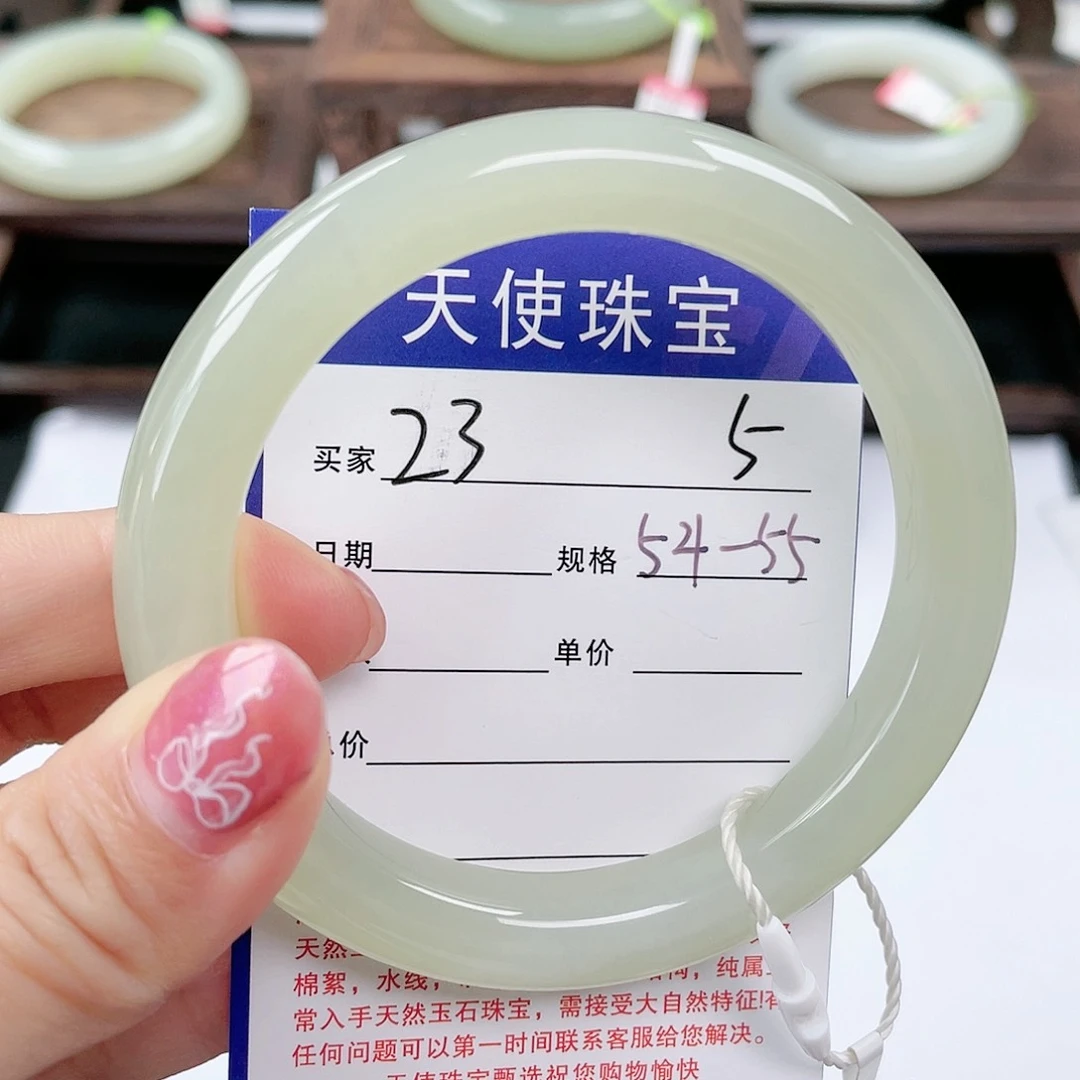 天使珠宝
买家 23 5
日期 规格 54-55
单价
价
天然
棉絮，水线， 纯属
常入手天然玉石珠宝，需接受大自然特征!有
任何问题可以第一时间联系客服给您解决。
天使珠宝甄选祝您购物愉快